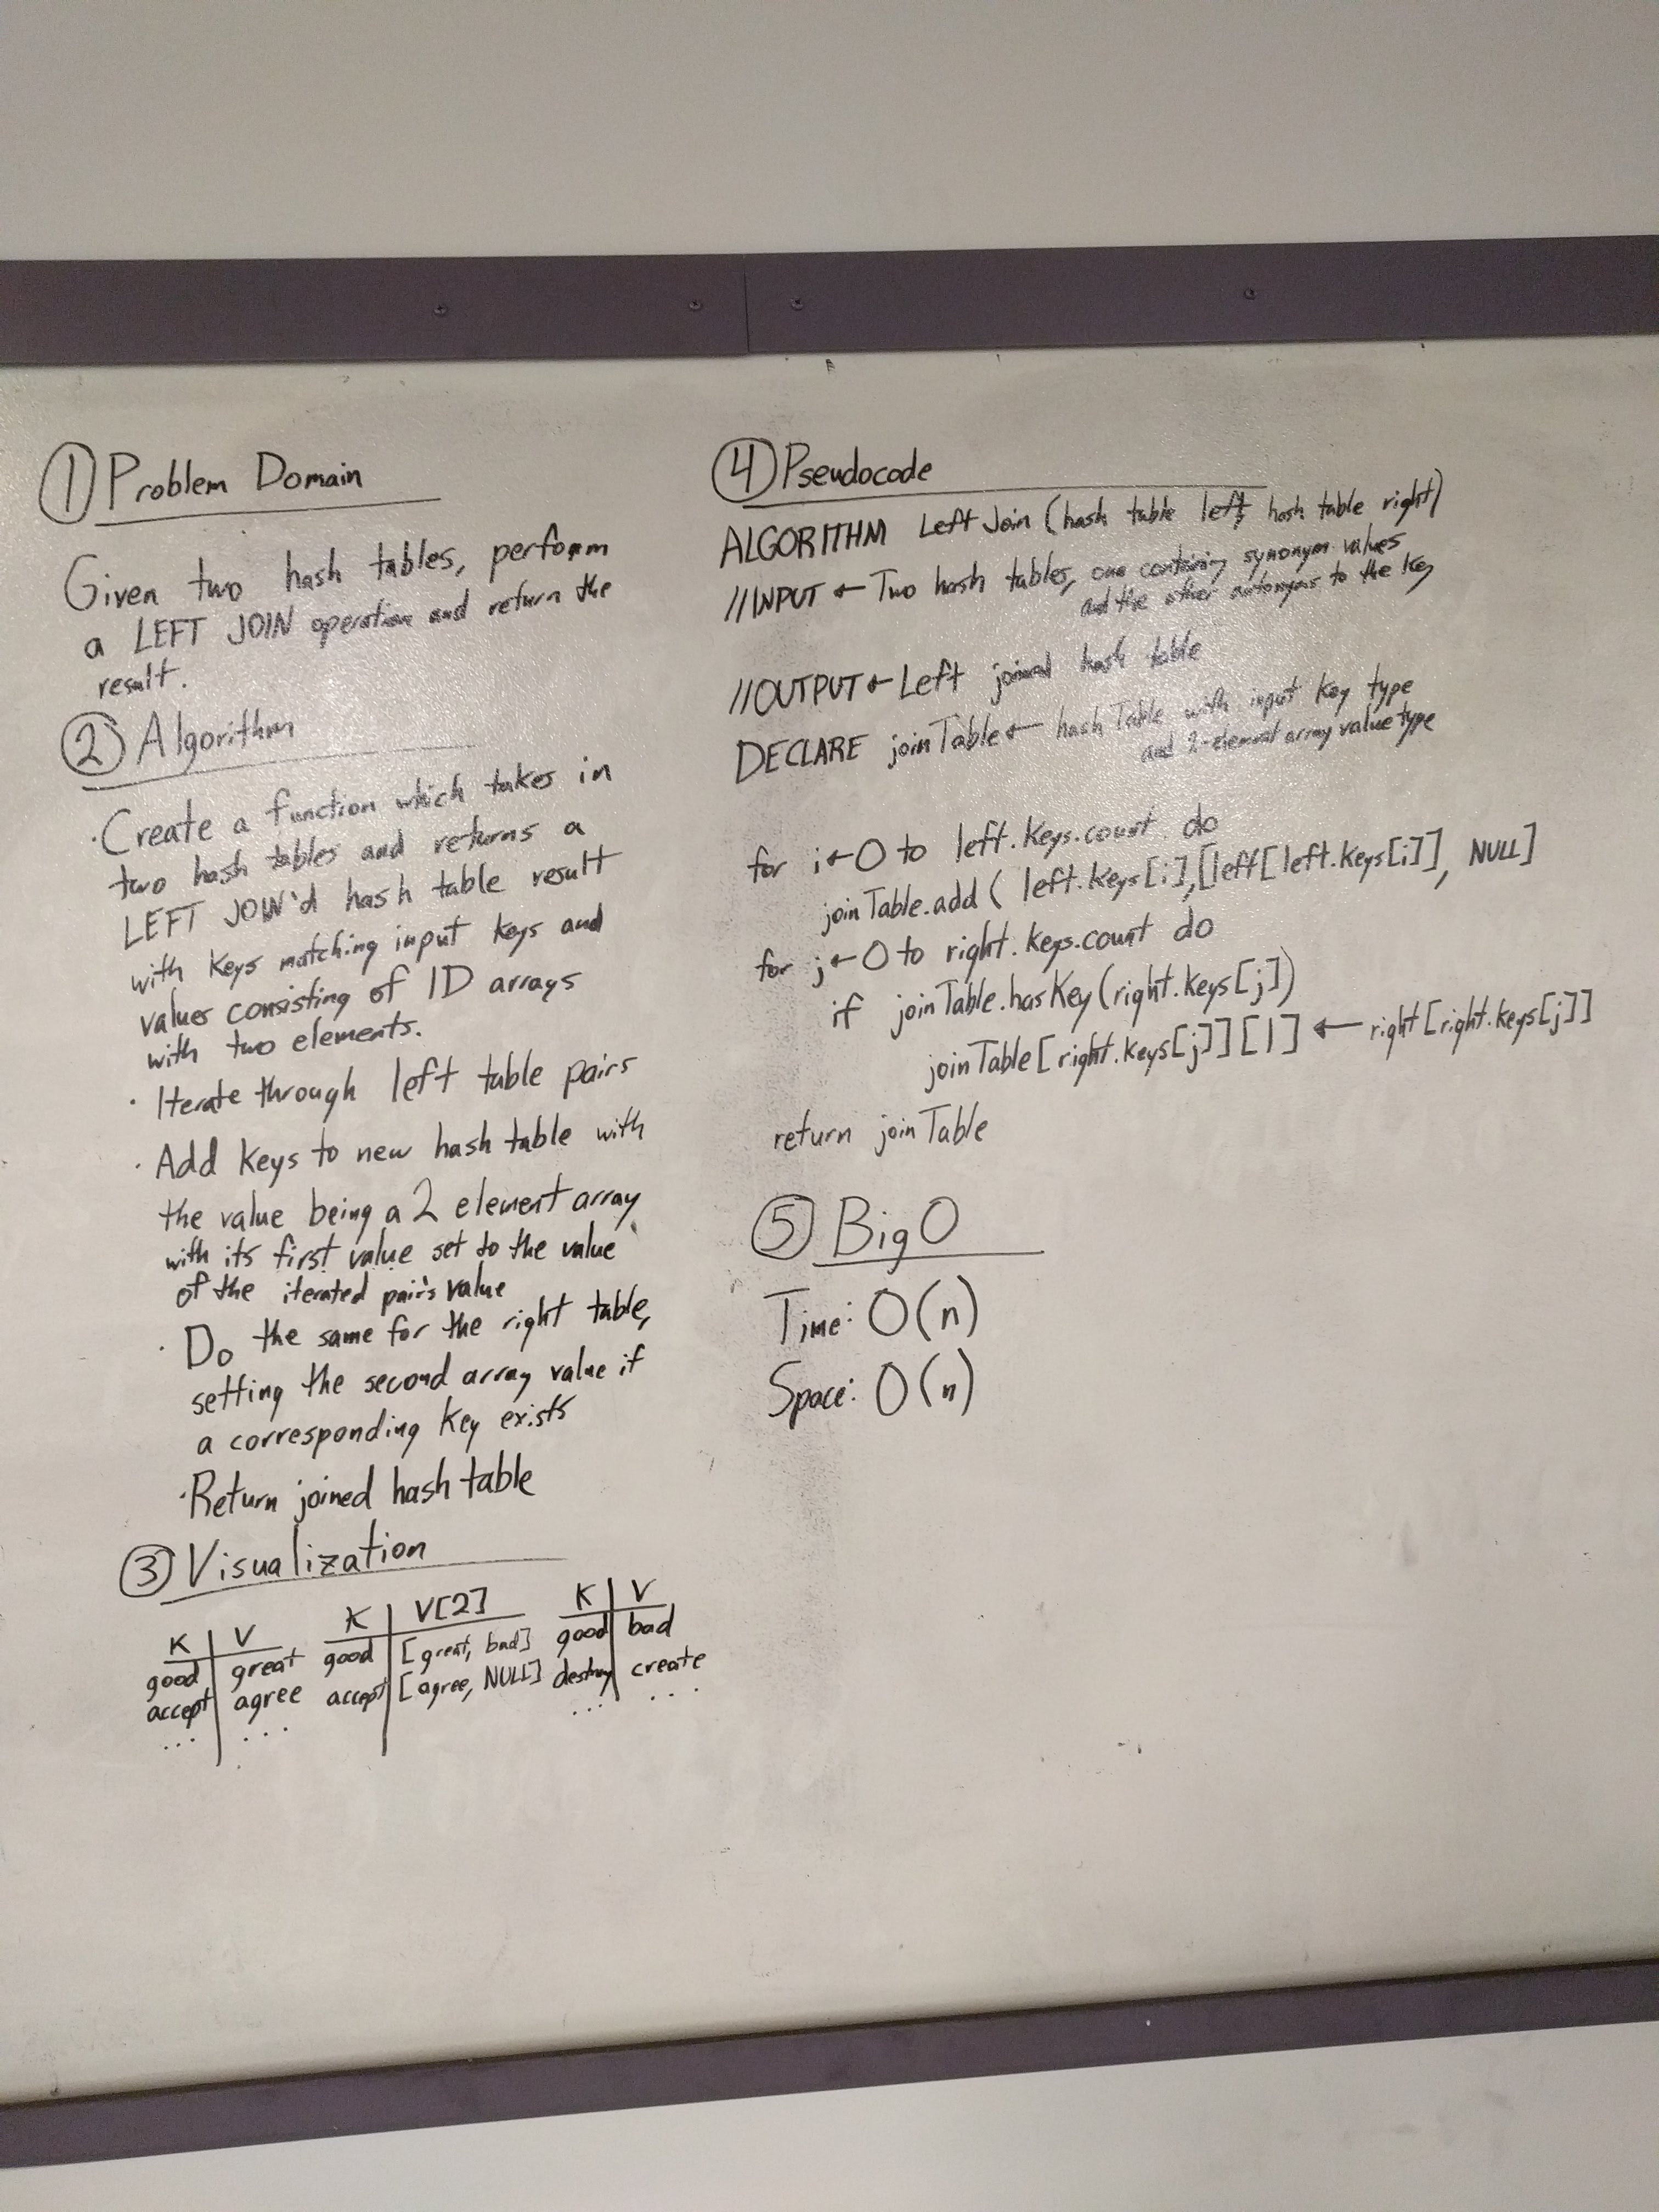 ① Problem Domain
Given two hash tables, perform
a LEFT JOIN operation and return the
result.
② Algorithm
· Create a function which takes in
two hash tables and returns a
LEFT JOIN'd hash table result
with keys matching input keys and
values consisting of 1D arrays
with two elements.
· Iterate through left table pairs
· Add keys to new hash table with
the value being a 2 element array
with its first value set to the value
of the iterated pair's value
· Do the same for the right table,
setting the second array value if
a corresponding key exists
· Return joined hash table
③ Visualization
K V
good great
accept agree
... ...
K V[2]
good [great, bad]
accept [agree, NULL]
K V
good bad
destroy create
... ...
④ Pseudocode
ALGORITHM Left Join (hash table left, hash table right)
//INPUT ← Two hash tables, one containing synonym values
and the other antonyms to the key
//OUTPUT ← Left joined hash table
DECLARE joinTable ← hash Table with input key type
and 2-element array value type
for i ← 0 to left.keys.count do
joinTable.add( left.keys[i], [left[left.keys[i]], NULL]
for j ← 0 to right.keys.count do
if joinTable.hasKey(right.keys[j])
joinTable[right.keys[j]][1] ← right[right.keys[j]]
return joinTable
⑤ Big O
Time: O(n)
Space: O(n)